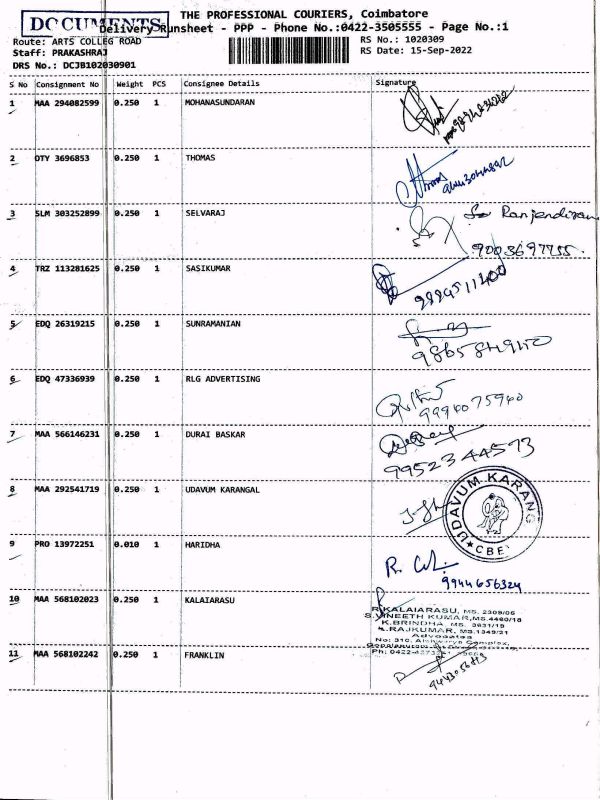 THE PROFESSIONAL COURIERS, Coimbatore
DOCUMENTS
Delivery Runsheet - PPP - Phone No.:0422-3505555 - Page No.:1
Route: ARTS COLLEG ROAD RS No.: 1020309
Staff: PRAKASHRAJ RS Date: 15-Sep-2022
DRS No.: DCJB102030901
S No Consignment No Weight PCS Consignee Details Signature
1 MAA 294082599 0.250 1 MOHANASUNDARAN
2 OTY 3696853 0.250 1 THOMAS
3 SLM 303252899 0.250 1 SELVARAJ
9003697755
4 TRZ 113281625 0.250 1 SASIKUMAR
9894511400
5 EDQ 26319215 0.250 1 SUNRAMANIAN
6 EDQ 47336939 0.250 1 RLG ADVERTISING
9994075940
7 MAA 566146231 0.250 1 DURAI BASKAR
9952344573
8 MAA 292541719 0.250 1 UDAVUM KARANGAL
UDAVUM KARANG
CBE
9 PRO 13972251 0.010 1 HARIDHA
9944656324
10 MAA 568102023 0.250 1 KALAIARASU
R.KALAIARASU, MS. 2309/05
S.VINEETH KUMAR, MS.4460/18
K.BRINDHA, MS. 3631/19
A.RAJKUMAR, MS.1349/21
Advocates
11 MAA 568102242 0.250 1 FRANKLIN